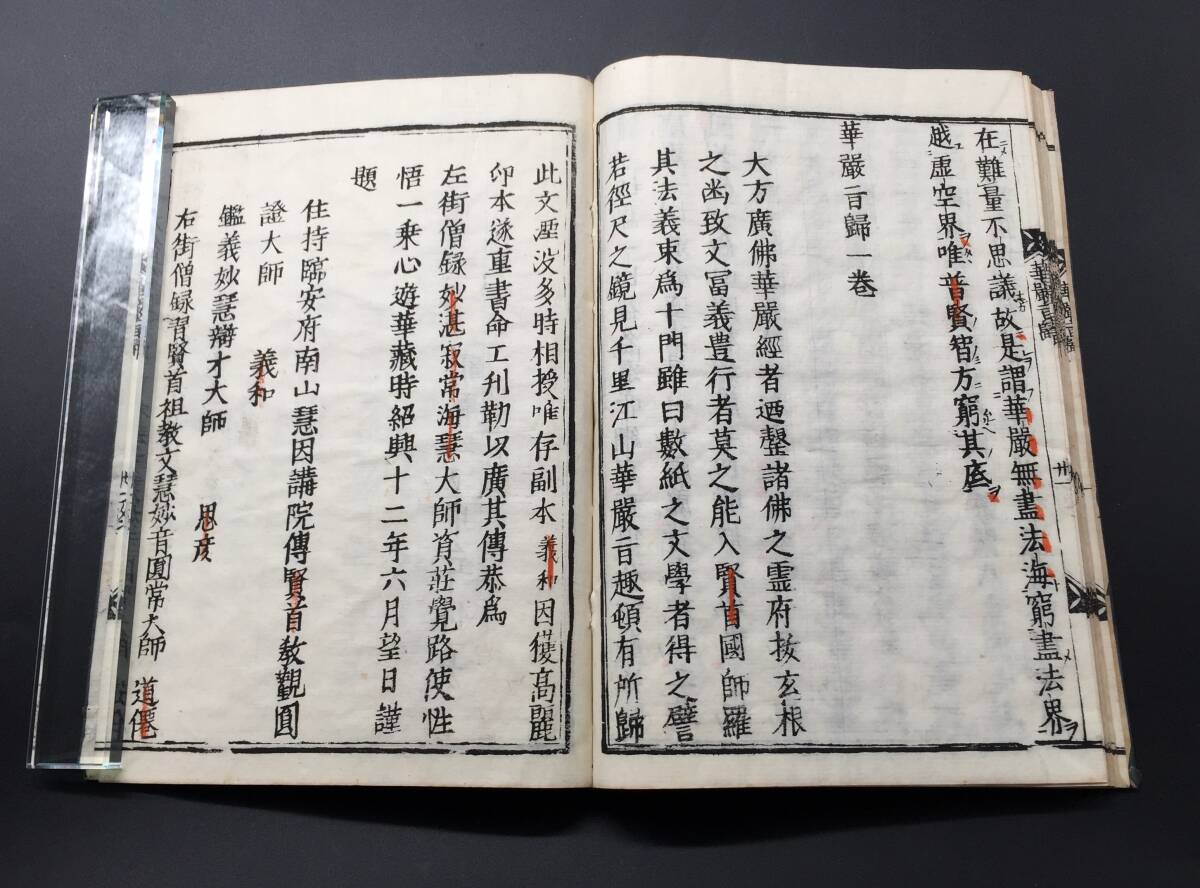 在難量不思議故是謂華嚴無盡法海窮盡法界
越虛空界唯普賢智方窮其底
華嚴㫖歸一卷
大方廣佛華嚴經者迺罄諸佛之霊府拔玄根
之幽致文冨義豊行者莫之能入賢首國師羅
其法義束爲十門雖曰數紙之文學者得之譬
若徑尺之鏡見千里江山華嚴㫖趣頓有所歸
此文湮沒多時相授唯存副本義和因獲高麗
印本遂重書命工刋勒以廣其傳恭爲
左街僧録妙湛寂常海慧大師資莊覺路使性
悟一乗心遊華藏時紹興十二年六月望日謹
題
住持臨安府南山慧因講院傳賢首教觀圓
證大師 義和
鑑義妙慧辯才大師 思彦
右街僧録賢首祖教文慧妙音圓常大師 道僊
華嚴㫖歸
卅一